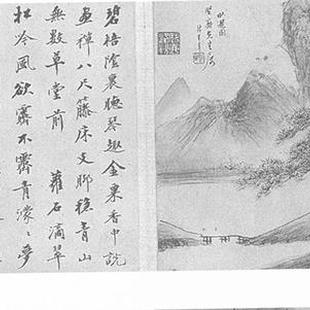 碧梧陰裏聽琴趣金粟香中說
畫禪八尺藤床支腳穩青山
無數草堂前　蘿石滴翠
松冷風欲霽不霽青濛〻夢